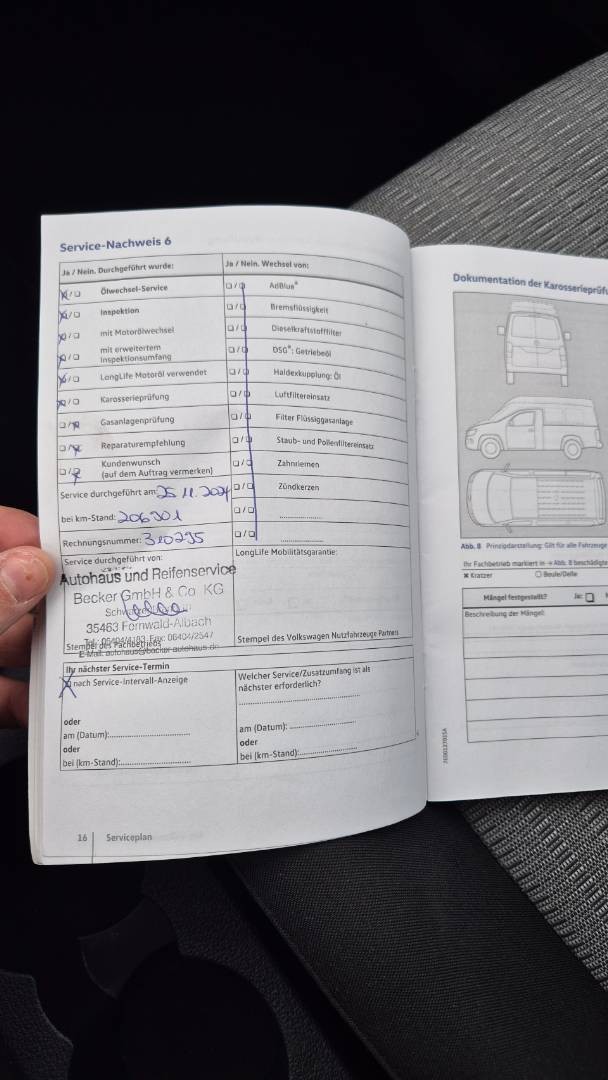 Service-Nachweis 6
Ja / Nein. Durchgeführt wurde:
Ölwechsel-Service
Inspektion
mit Motorölwechsel
mit erweitertem
Inspektionsumfang
LongLife Motoröl verwendet
Karosserieprüfung
Gasanlagenprüfung
Reparaturempfehlung
Kundenwunsch
(auf dem Auftrag vermerken)
Service durchgeführt am: 25.11.2024
bei km-Stand: 206301
Rechnungsnummer: 310295
Service durchgeführt von:
Autohaus und Reifenservice
Becker GmbH & Co. KG
35463 Fernwald-Albach
Tel.: 06404/4183, Fax: 06404/2547
Stempel des Fachbetriebs
E-Mail: autohaus@becker-autohaus.de
Ja / Nein. Wechsel von:
AdBlue®
Bremsflüssigkeit
Dieselkraftstofffilter
DSG®: Getriebeöl
Haldexkupplung: Öl
Luftfiltereinsatz
Filter Flüssiggasanlage
Staub- und Pollenfiltereinsatz
Zahnriemen
Zündkerzen
LongLife Mobilitätsgarantie:
Stempel des Volkswagen Nutzfahrzeuge Partners
Ihr nächster Service-Termin
nach Service-Intervall-Anzeige
oder
am (Datum):
oder
bei (km-Stand):
Welcher Service/Zusatzumfang ist als
nächster erforderlich?
am (Datum):
oder
bei (km-Stand):
16 Serviceplan
Dokumentation der Karosserieprüfu
Abb. 8 Prinzipdarstellung: Gilt für alle Fahrzeuge
Ihr Fachbetrieb markiert in → Abb. 8 beschädigte
Kratzer Beule/Delle
Mängel festgestellt? Ja:
Beschreibung der Mängel: